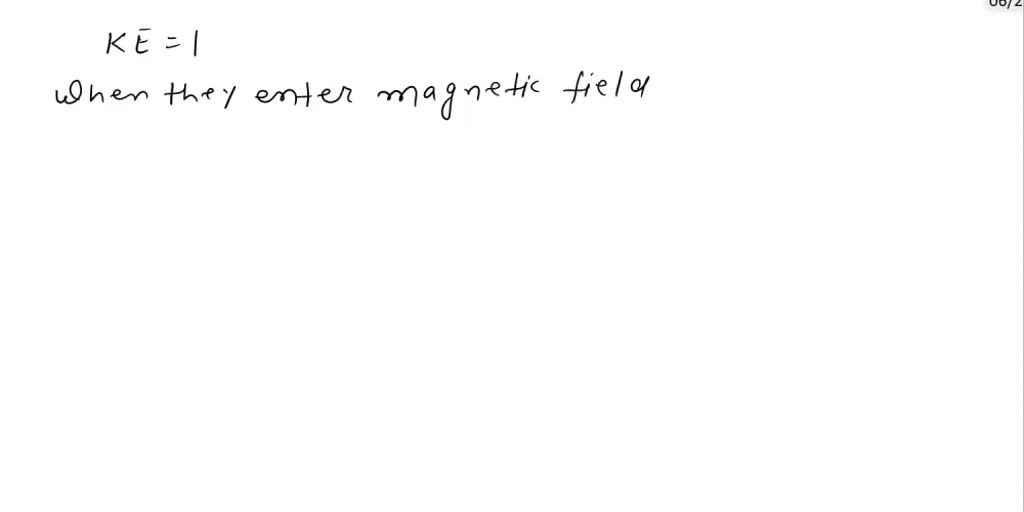 KE = 1
when they enter magnetic field